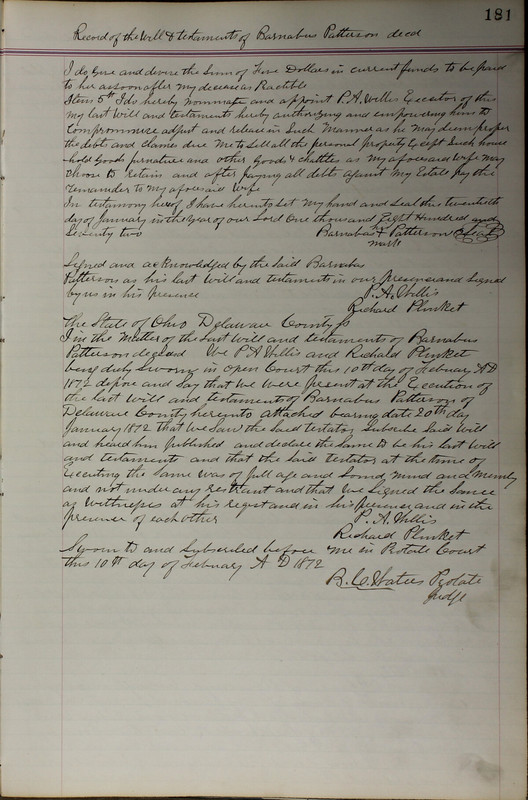 181
Record of the Will & testaments of Barnabus Patterson decd
I do give and devise the Sum of Five Dollars in current funds to be paid
to her as soon after my decease as Practible
Item 5th I do hereby nominate and appoint P.A. Willis Executor of this
my last Will and testament hereby authorizing and empowering him to
Compromise adjust and release in Such Manner as he may deem proper
the debts and claims due Me to Sell all the personal property Except Such house
-hold Goods furnature and other Goods & chattles as my aforesaid wife may
choose to retain and after paying all debts against my Estate pay the
remainder to my aforesaid Wife
In testamony hereof I have hereunto Set my hand and Seal this twentieth
day of January in the Year of our Lord One thousand Eight Hundred and
Seventy two Barnabus his X Patterson Seal
mark
Signed and acknowledged by the Said Barnabus
Patterson as his last Will and testament in our presence and Signed
by us in his presence P. A. Willis
Richard Plunket
The State of Ohio Delaware County ss
In the Matter of the Last Will and testaments of Barnabus
Patterson deceased We P. A. Willis and Richard Plunket
being duly Sworn in open Court this 10th day of February AD
1872 depose and Say that We Were present at the Execution of
the last Will and testaments of Barnabus Patterson of
Delaware County hereunto attached bearing date 20th day
January 1872 that we Saw the Said testator Subscribe Said Will
and heard him published and declare the Same to be his last Will
and testaments and that the Said testator at the time of
Executing the Same was of full age and Sound mind and Memory
and not under any restraint and that We Signed the Same
as Wittnesses at his request and in his presence and in the
presence of each other P. A. Willis
Richard Plunket
Sworn to and Subscribed before me in Probate Court
this 10th day of February A D 1872
B. C. Waters Probate
Judge